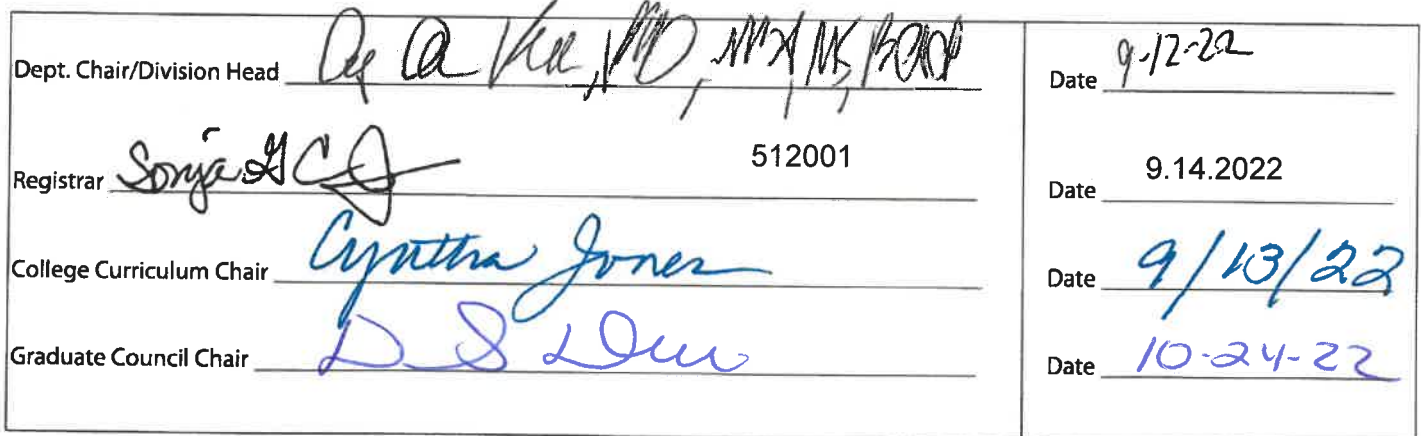 Dept. Chair/Division Head Date 9-12-22
Registrar Sonja G 512001 Date 9.14.2022
College Curriculum Chair Cynthia Jones Date 9/13/22
Graduate Council Chair D S Date 10-24-22